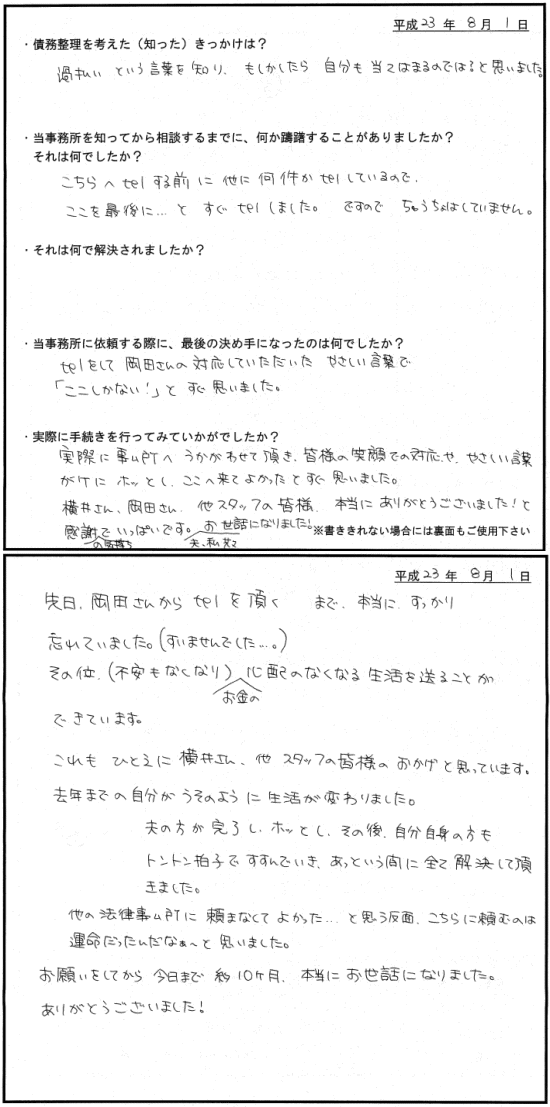 平成 23 年 8 月 1 日
・債務整理を考えた（知った）きっかけは？
過払い という言葉を知り、もしかしたら 自分も 当てはまるのでは？と思いました。
・当事務所を知ってから相談するまでに、何か躊躇することがありましたか？
それは何でしたか？
こちらへ telする前に 他に 何件か telしているので、
ここを最後に… と すぐ telしました。 ですので ちゅうちょはしていません。
・それは何で解決されましたか？
・当事務所に依頼する際に、最後の決め手になったのは何でしたか？
telをして 岡田さんの 対応していただいた やさしい言葉で
「ここしかない！」と すぐ思いました。
・実際に手続きを行ってみていかがでしたか？
実際に 事ム所へ うかがわせて頂き、皆様の笑顔での対応や、やさしい言葉
がけに ホッとし、ここへ来てよかったと すぐ思いました。
横井さん、岡田さん、他スタッフの皆様、本当に ありがとうございました！と
感謝の気持ちでいっぱいです。 夫、私共々お世話になりました！※書ききれない場合には裏面もご使用下さい
平成 23 年 8 月 1 日
先日、岡田さんから telを頂く まで、本当に、すっかり
忘れていました。（すいませんでした…。）
その位、（不安もなくなり）お金の心配のなくなる 生活を送ることが
できています。
これも ひとえに 横井さん、他 スタッフの皆様の おかげと思っています。
去年までの自分が うそのように 生活が変わりました。
夫の方が 完了し、ホッとし、その後、自分自身の方も
トントン拍子で すすんでいき、あっという間に 全て 解決して頂
きました。
他の 法律事ム所に 頼まなくて よかった… と思う反面、こちらに頼むのは
運命だったんだなぁ～と 思いました。
お願いをしてから 今日まで 約10ヶ月、本当に お世話になりました。
ありがとうございました！